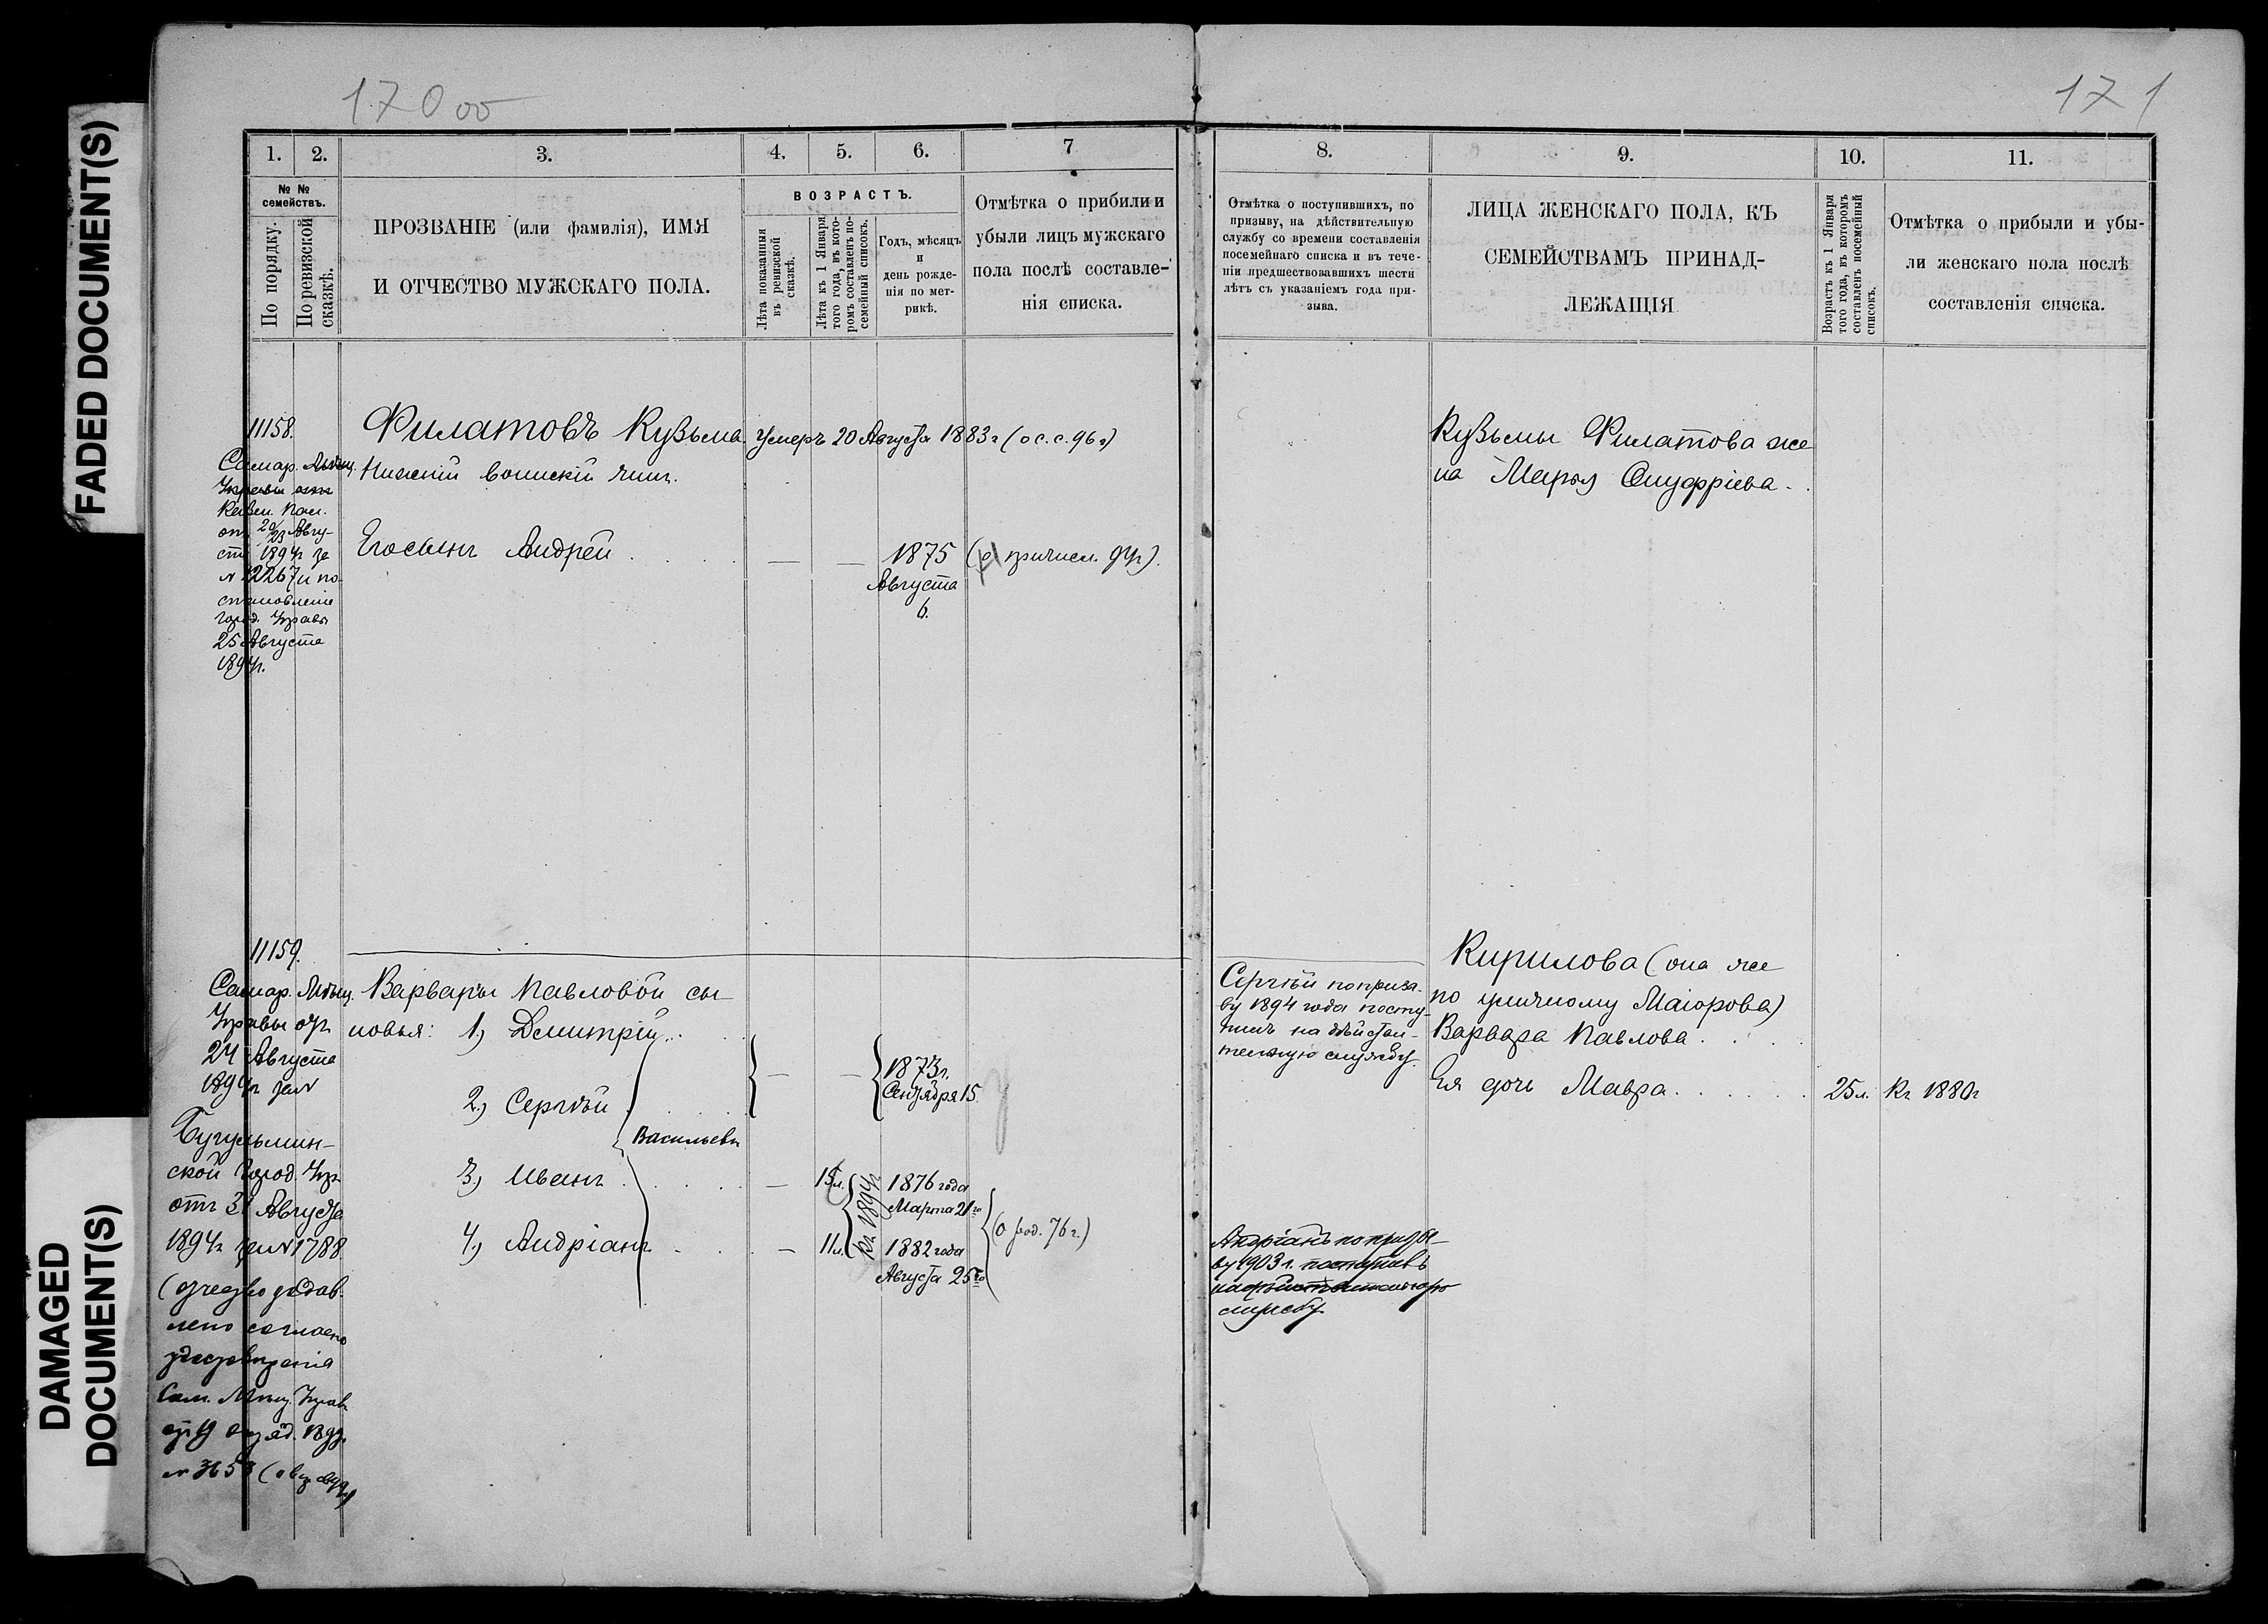 FADED DOCUMENT(S)
DAMAGED
DOCUMENT(S)
170 об
171
1. 2. 3. 4. 5. 6. 7
№ №
семействъ.
По порядку.
По ревизской
сказкѣ.
ПРОЗВАНІЕ (или фамилія), ИМЯ
И ОТЧЕСТВО МУЖСКАГО ПОЛА.
ВОЗРАСТЪ.
Лѣта показанныя
въ ревизской
сказкѣ.
Лѣта къ 1 Января
того года, въ кото-
ромъ составленъ по-
семейный списокъ.
Годъ, мѣсяцъ
и
день рожде-
нія по мет-
рикѣ.
Отмѣтка о прибыли и
убыли лицъ мужскаго
пола послѣ составле-
нія списка.
11158.
Самар. Мѣщ.
Управы
Казен. Пал.
от 20/23 Авгу-
ста 1894г за
№ 12267 и по-
становленіе
Город. Управы
25 Августа
1894г.
Филатовъ Кузьма умеръ 20 Августа 1883г (о с. с. 96 г)
Нижній воинскій чинъ.
Его сынъ Андрей
— — 1875 (о причисл. 94г).
Августа
6.
11159.
Самар. Мѣщ.
Управы отъ
24 Августа
1894г за №
Бугульмин-
ской Город. Упр.
отъ 31 Августа
1894г за № 1788
(отчество добав-
лено согласно
удостовѣренія
Сам. Мѣщ. Управ.
Варвары Павловой сы-
новья: 1) Дмитрій
2) Сергѣй
Васильевы
3) Иванъ
4) Андріанъ
— — 1873г.
Сентября 15.
— 15л. 1876 года
Марта 21го
— 11л. 1882 года
Августа 25го
Къ 1894г
(о род. 76 г.)
8. 9. 10. 11.
Отмѣтка о поступившихъ, по
призыву, на дѣйствительную
службу со времени составленія
посемейнаго списка и въ тече-
ніи предшествовавшихъ шести
лѣтъ съ указаніемъ года при-
зыва.
ЛИЦА ЖЕНСКАГО ПОЛА, КЪ
СЕМЕЙСТВАМЪ ПРИНАД-
ЛЕЖАЩІЯ
Возрастъ къ 1 Января
того года, въ которомъ
составленъ посемейный
списокъ.
Отмѣтка о прибыли и убы-
ли женскаго пола послѣ
составленія списка.
Кузьмы Филатова же
на Марья Онуфріева.
Сергѣй по призы-
ву 1894 года посту-
пилъ на дѣйстви-
тельную службу.
Кирилова (она же
по уличному Маіорова)
Варвара Павлова
Ея дочь Мавра 25л. Къ 1880г
Андріанъ по призы-
ву 1903 г. поступивъ
на дѣйствительную
службу